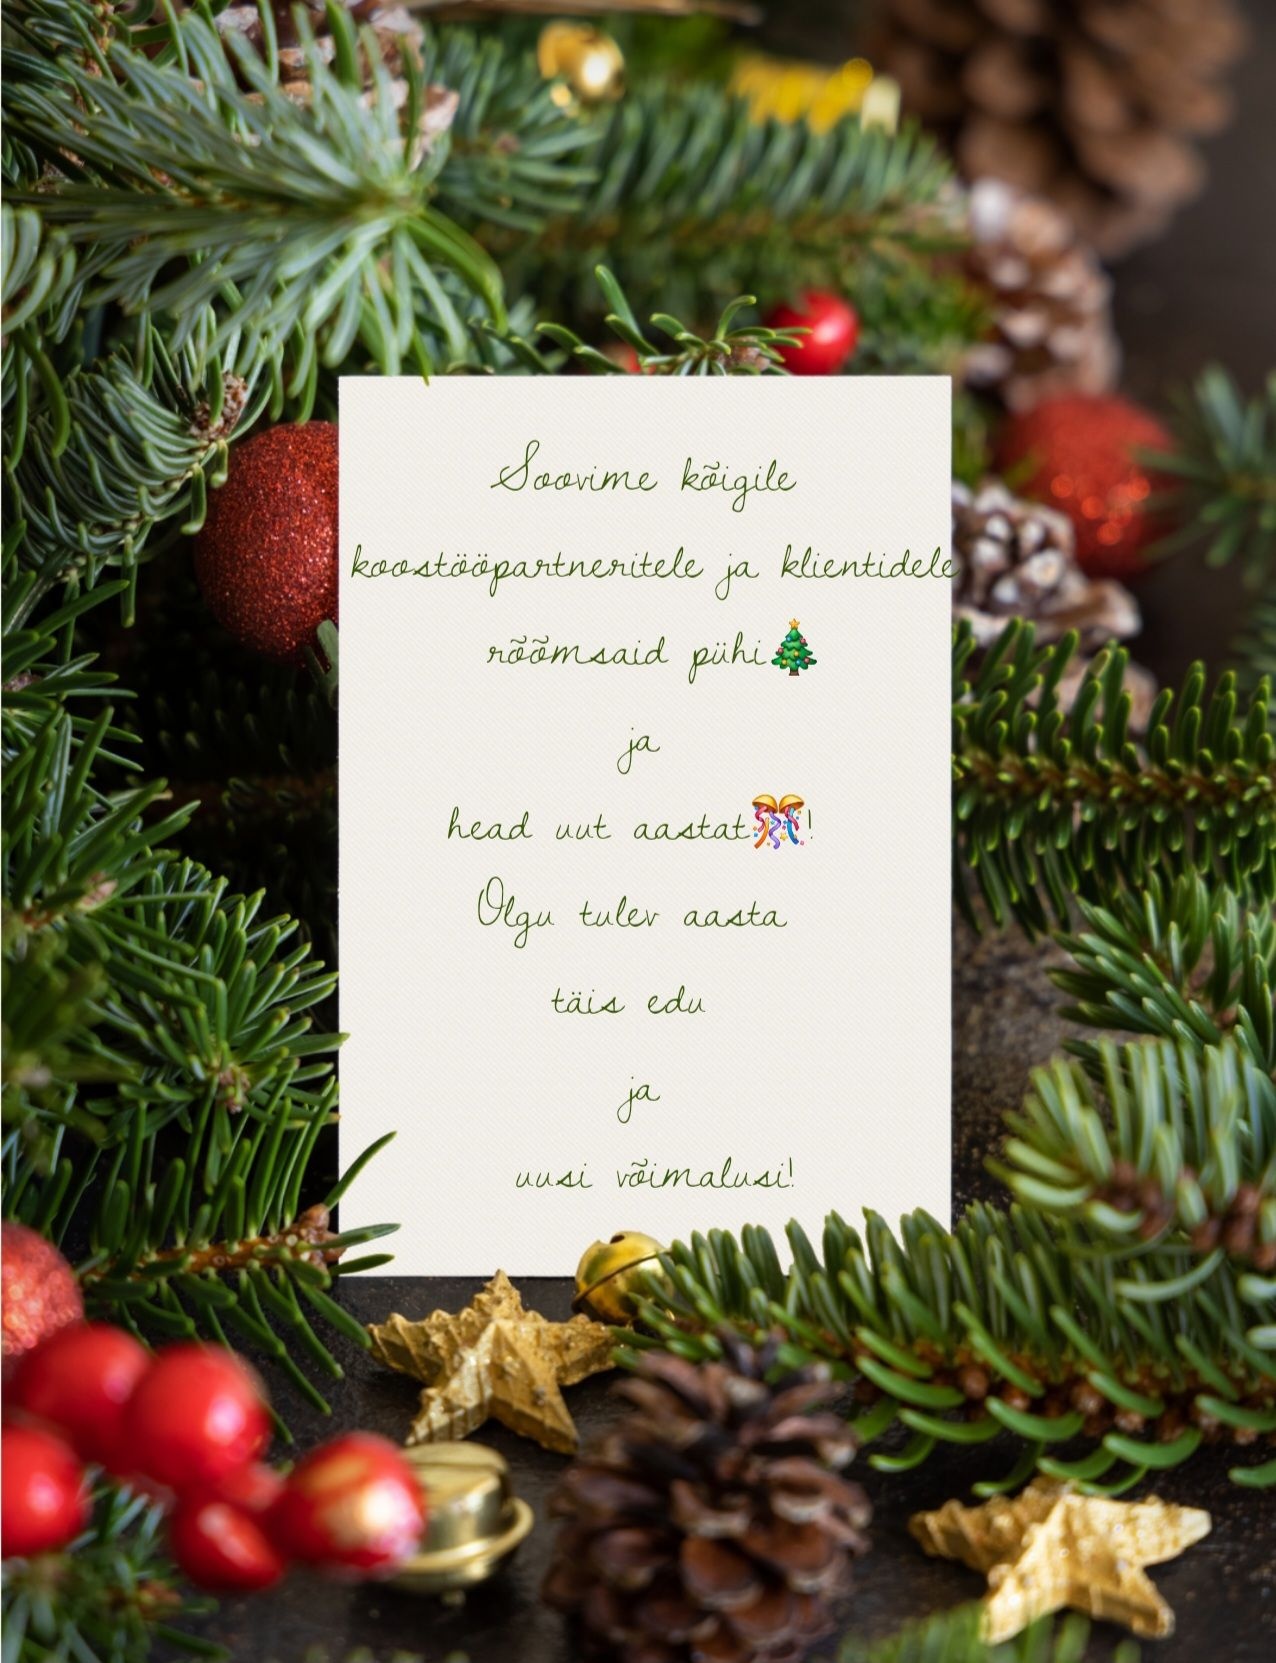 Soovime kõigile
koostööpartneritele ja klientidele
rõõmsaid pühi🎄
ja
head uut aastat🎊!
Olgu tulev aasta
täis edu
ja
uusi võimalusi!